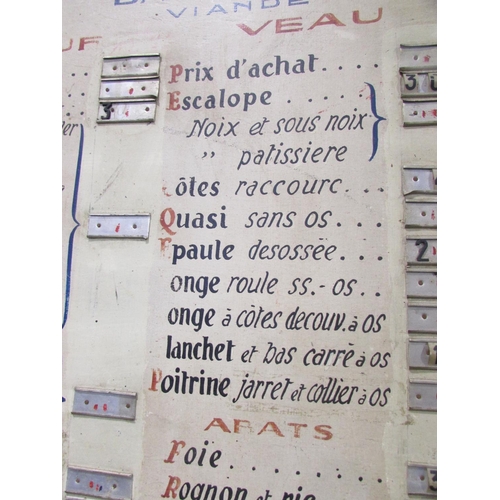 VIANDE
VEAU
Prix d'achat....
Escalope ......
Noix et sous noix
„ patissiere
Côtes raccourc....
Quasi sans os...
Epaule desossée...
onge roule ss.-os..
onge à côtes decouv. à os
lanchet et bas carrè à os
Poitrine jarret et collier à os
ABATS
Foie.......
Rognon et ris